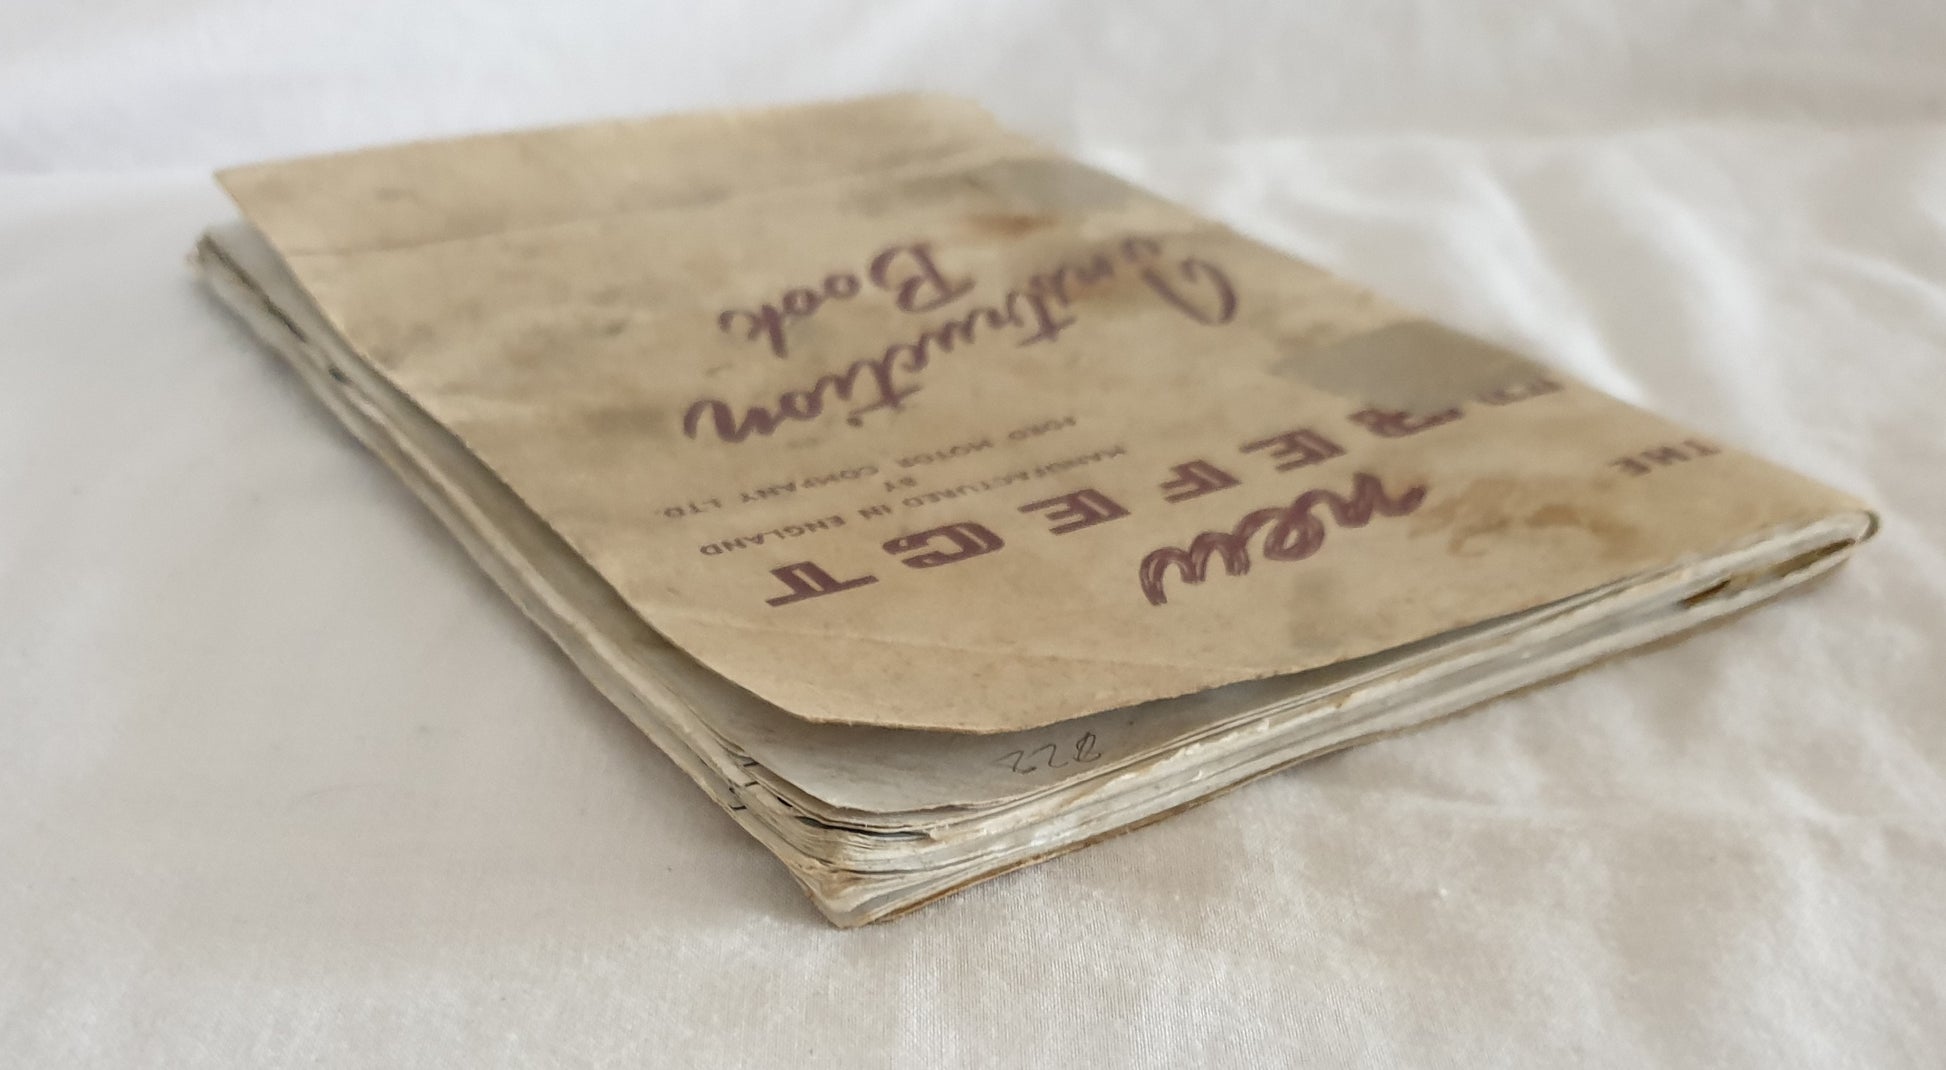 THE
new
PREFECT
MANUFACTURED IN ENGLAND
BY
FORD MOTOR COMPANY LTD.
Instruction
Book